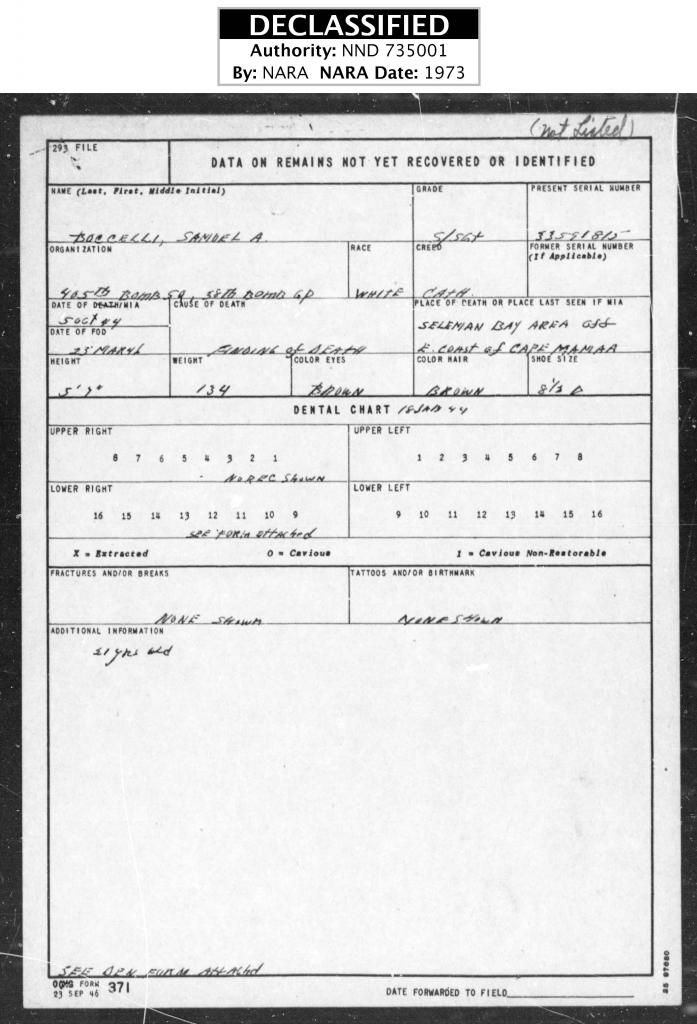 DECLASSIFIED
Authority: NND 735001
By: NARA NARA Date: 1973
(not Listed)
293 FILE
DATA ON REMAINS NOT YET RECOVERED OR IDENTIFIED
NAME (Last, First, Middle Initial)
GRADE
PRESENT SERIAL NUMBER
BOCCELLI, SAMUEL A.
S/SGT
33591815
ORGANIZATION
RACE
CREED
FORMER SERIAL NUMBER
(If Applicable)
405th BOMB SQ, 38th BOMB GP
WHITE
CATH.
DATE OF DEATH/MIA
CAUSE OF DEATH
PLACE OF DEATH OR PLACE LAST SEEN IF MIA
5 OCT 44
SELEMAN BAY AREA OFF
DATE OF FOD
23 MAR 46
FINDING of DEATH
E. COAST of CAPE
HEIGHT
WEIGHT
COLOR EYES
COLOR HAIR
SHOE SIZE
5' 7"
134
BROWN
BROWN
8½ D
DENTAL CHART 18 JAN 44
UPPER RIGHT
UPPER LEFT
8 7 6 5 4 3 2 1
1 2 3 4 5 6 7 8
NO REC SHOWN
LOWER RIGHT
LOWER LEFT
16 15 14 13 12 11 10 9
9 10 11 12 13 14 15 16
SEE FORM attached
X = Extracted
O = Cavious
1 = Cavious Non-Restorable
FRACTURES AND/OR BREAKS
TATTOOS AND/OR BIRTHMARK
NONE SHOWN
NONE SHOWN
ADDITIONAL INFORMATION
21 yrs old
SEE DEN FORM Attached
OQMG FORM
23 SEP 46
371
DATE FORWARDED TO FIELD
25 87680